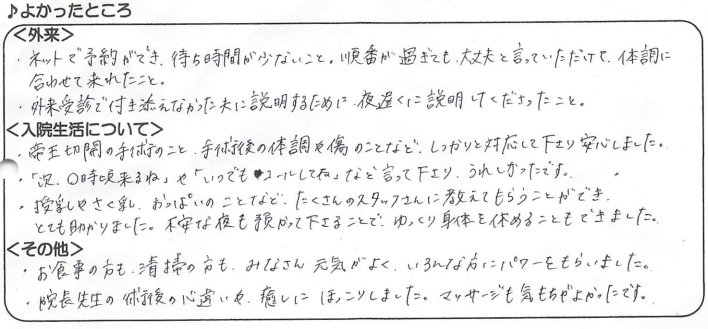 ♪よかったところ
<外来>
・ネットで予約ができ、待ち時間が少ないこと。順番が過ぎても、大丈夫と言っていただけて、体調に
合わせて来れたこと。
・外来受診で付き添えなかった夫に説明するために、夜遅くに説明してくださったこと。
<入院生活について>
・帝王切開の手術のこと、手術後の体調や傷のことなど、しっかりと対応して下さり安心しました。
・「次、〇時頃来るね」や「いつでもコールしてね」など言って下さり、うれしかったです。
・授乳やさく乳、おっぱいのことなど、たくさんのスタッフさんに教えてもらうことができ、
とても助かりました。不安な夜も預かって下さることで、ゆっくり身体を休めることもできました。
<その他>
・お食事の方も、清掃の方も、みなさん元気がよく、いろんな方にパワーをもらいました。
・院長先生の術後の心遣いや、癒しにほっこりしました。マッサージも気もちがよかったです。